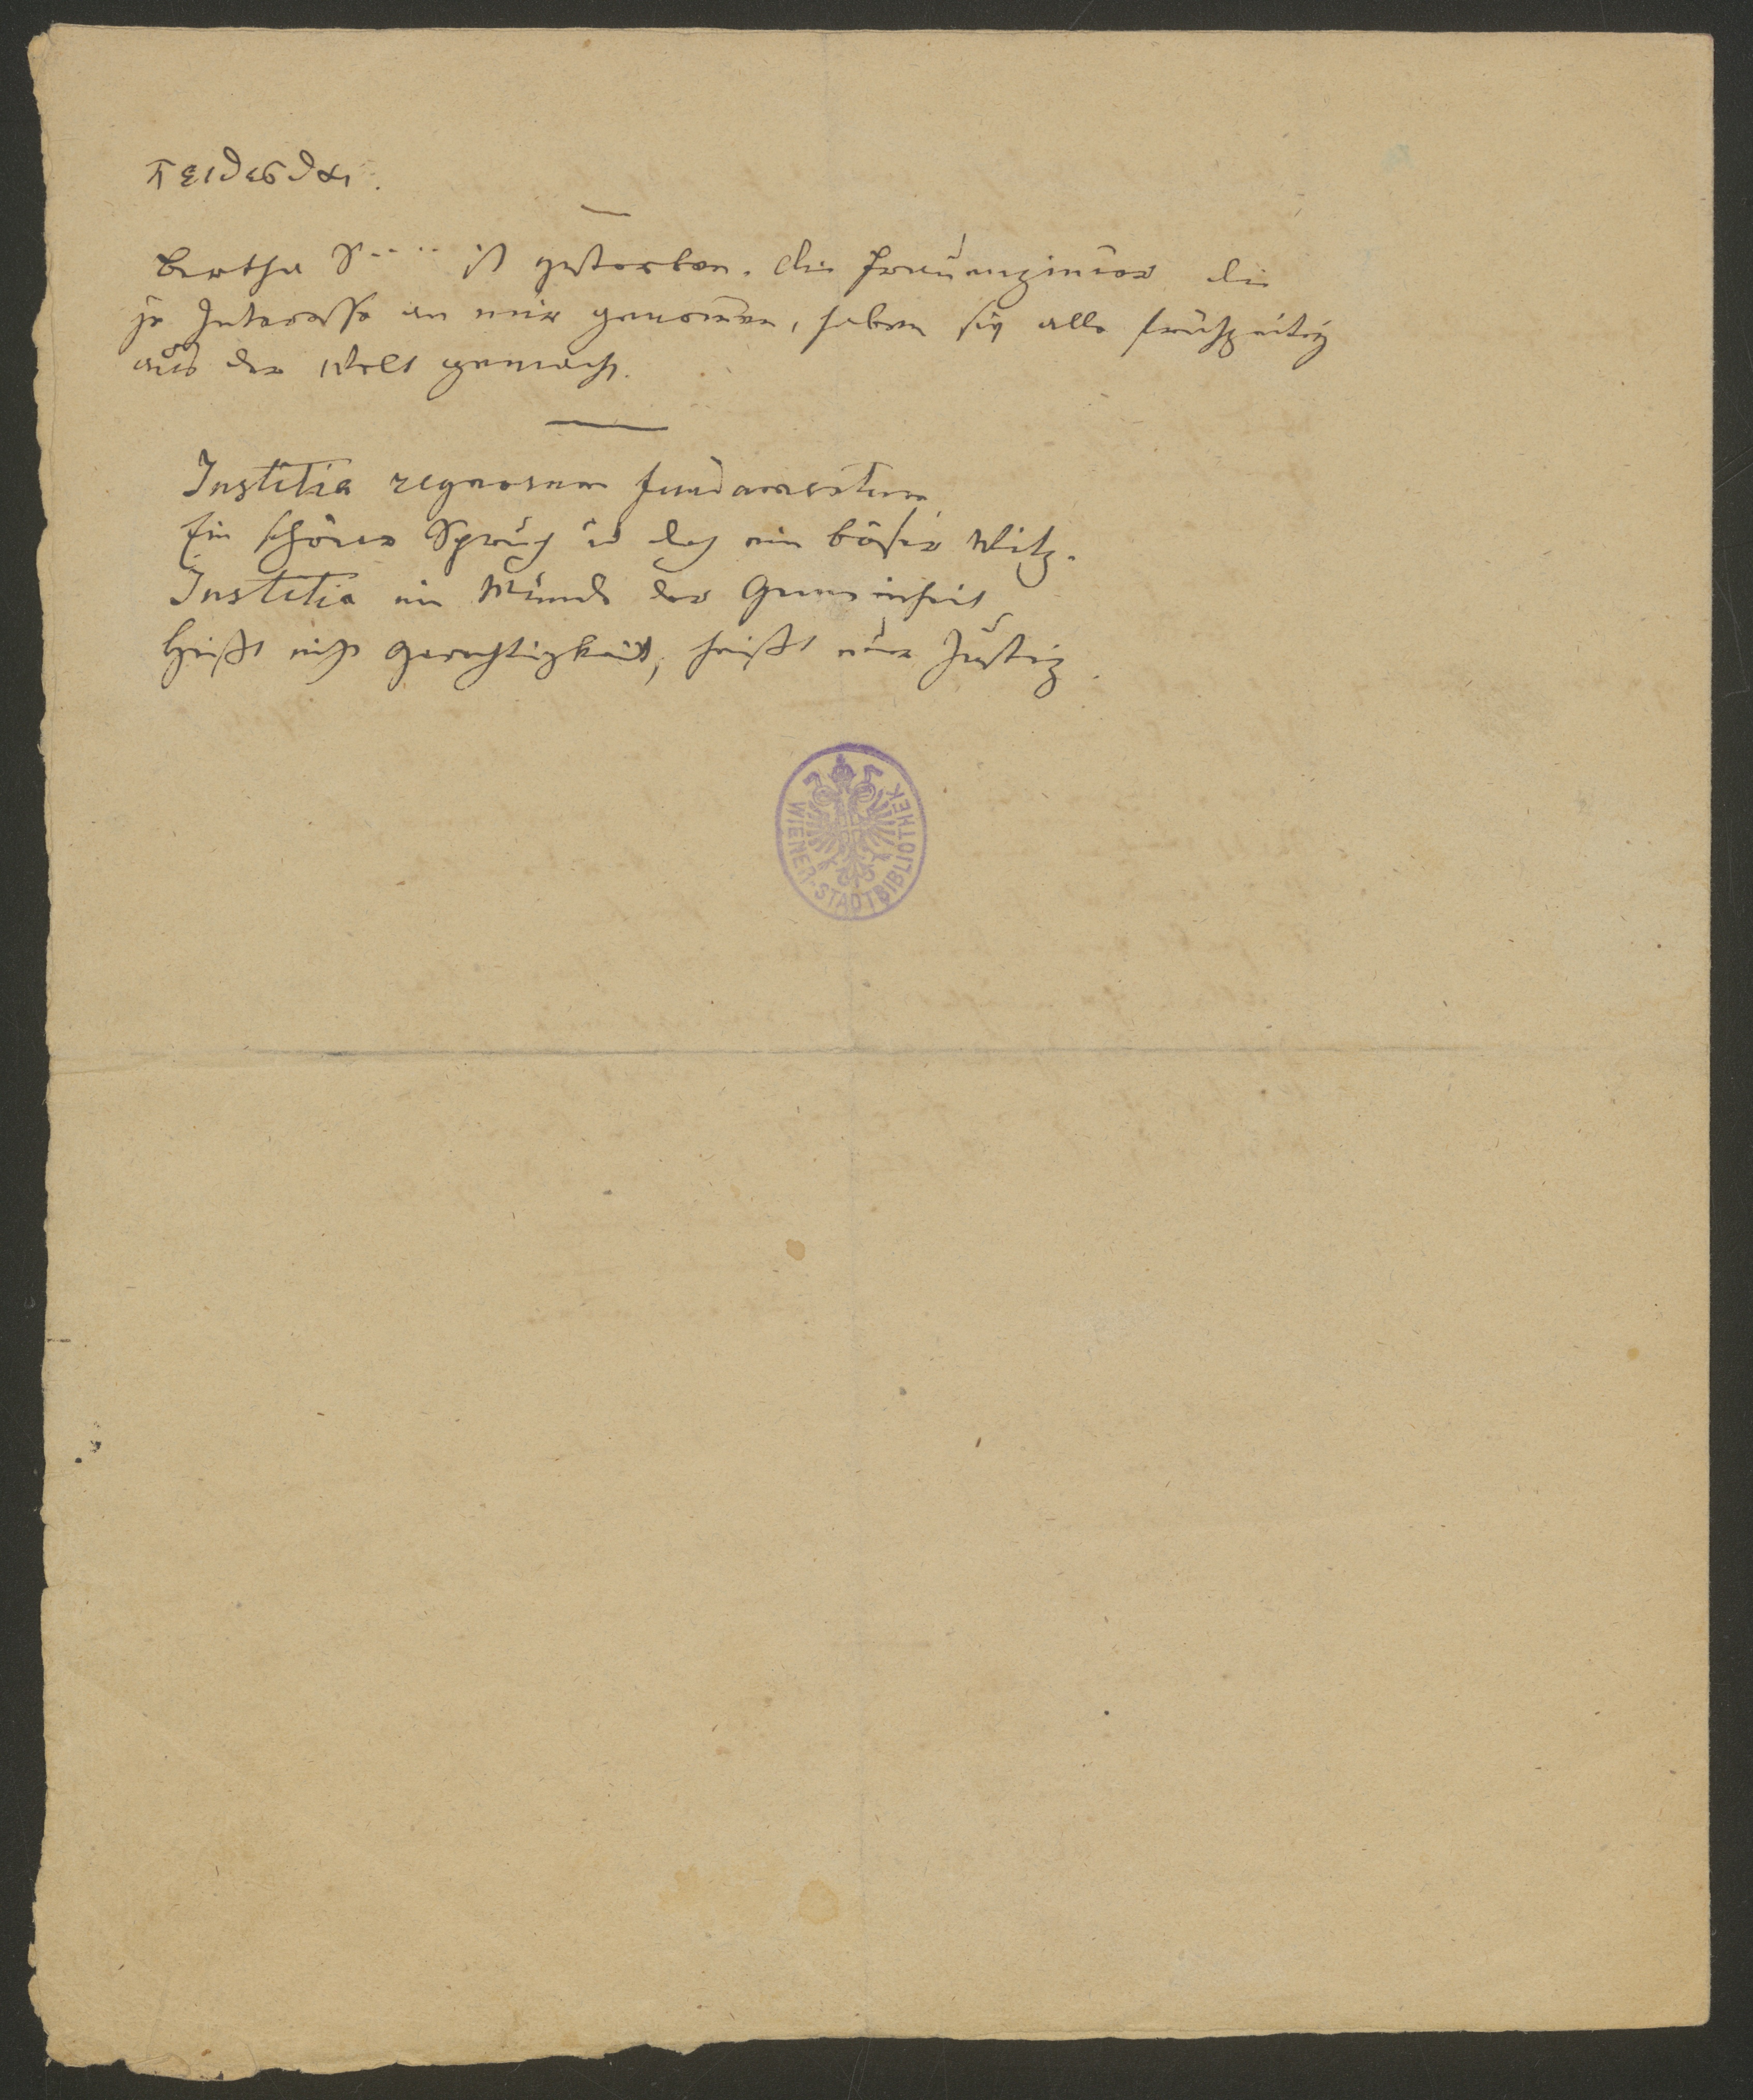 πειθεσθαι.
Bertha S.... ist gestorben. Die Frauenzim̄er die
je Interesse an mir genom̄en, haben sich alle frühzeitig
aus der Welt gemacht.
Justitia regnorum fundamentum,
Ein schöner Spruch und doch ein böser Witz.
Justitia im Munde der Gemeinheit
Heißt nicht Gerechtigkeit, heißt nur Justiz.
WIENER STADTBIBLIOTHEK